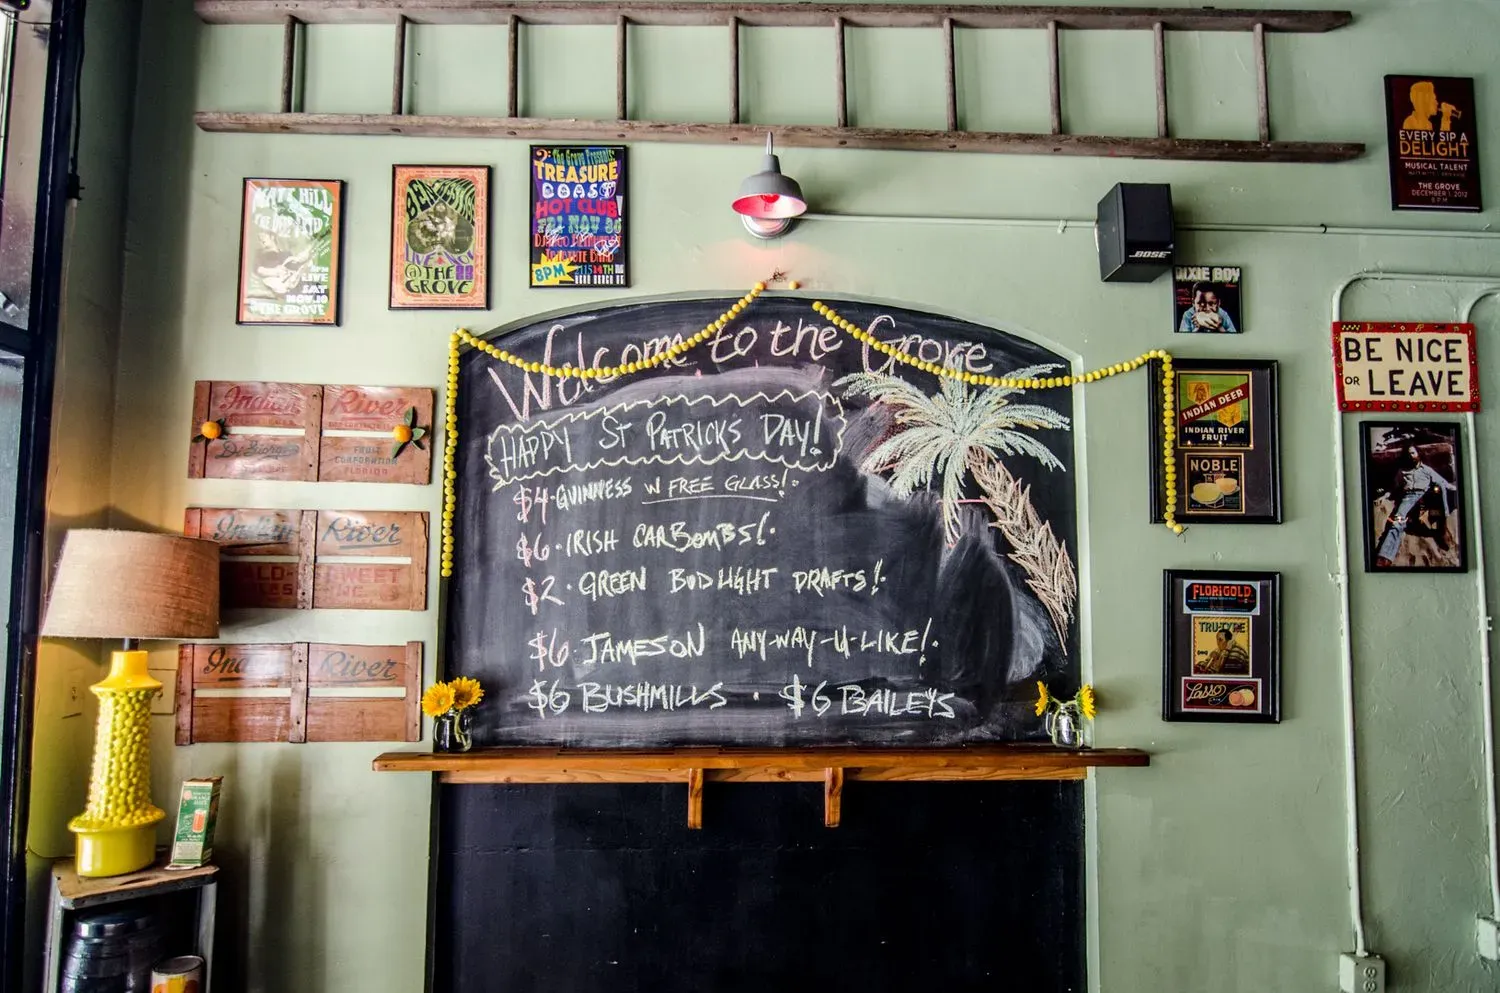 EVERY SIP A
DELIGHT
MUSICAL TALENT
THE GROVE
DECEMBER 1, 2012
8 P.M.
MATT HILL
SAT
NOV.10
THE GROVE
LIVE
@ THE
GROVE
The Grove Presents:
TREASURE
COAST
HOT CLUB!
FRI NOV 30
8PM
BOSE
DIXIE BOY
BE NICE
OR LEAVE
Welcome to the Grove
HAPPY ST PATRICKS DAY!
$4 · GUINNESS W FREE GLASS!·
$6 · IRISH CARBOMBS!·
$2 · GREEN BUD LIGHT DRAFTS!·
$6 · JAMESON ANY-WAY-U-LIKE!·
$6 BUSHMILLS · $6 BAILEYS
Indian River
FRUIT
CORPORATION
FLORIDA
Indian River
SWEET
INC
Indian River
INDIAN DEER
INDIAN RIVER
FRUIT
NOBLE
FLORIGOLD
TRU-TYPE
Lasso